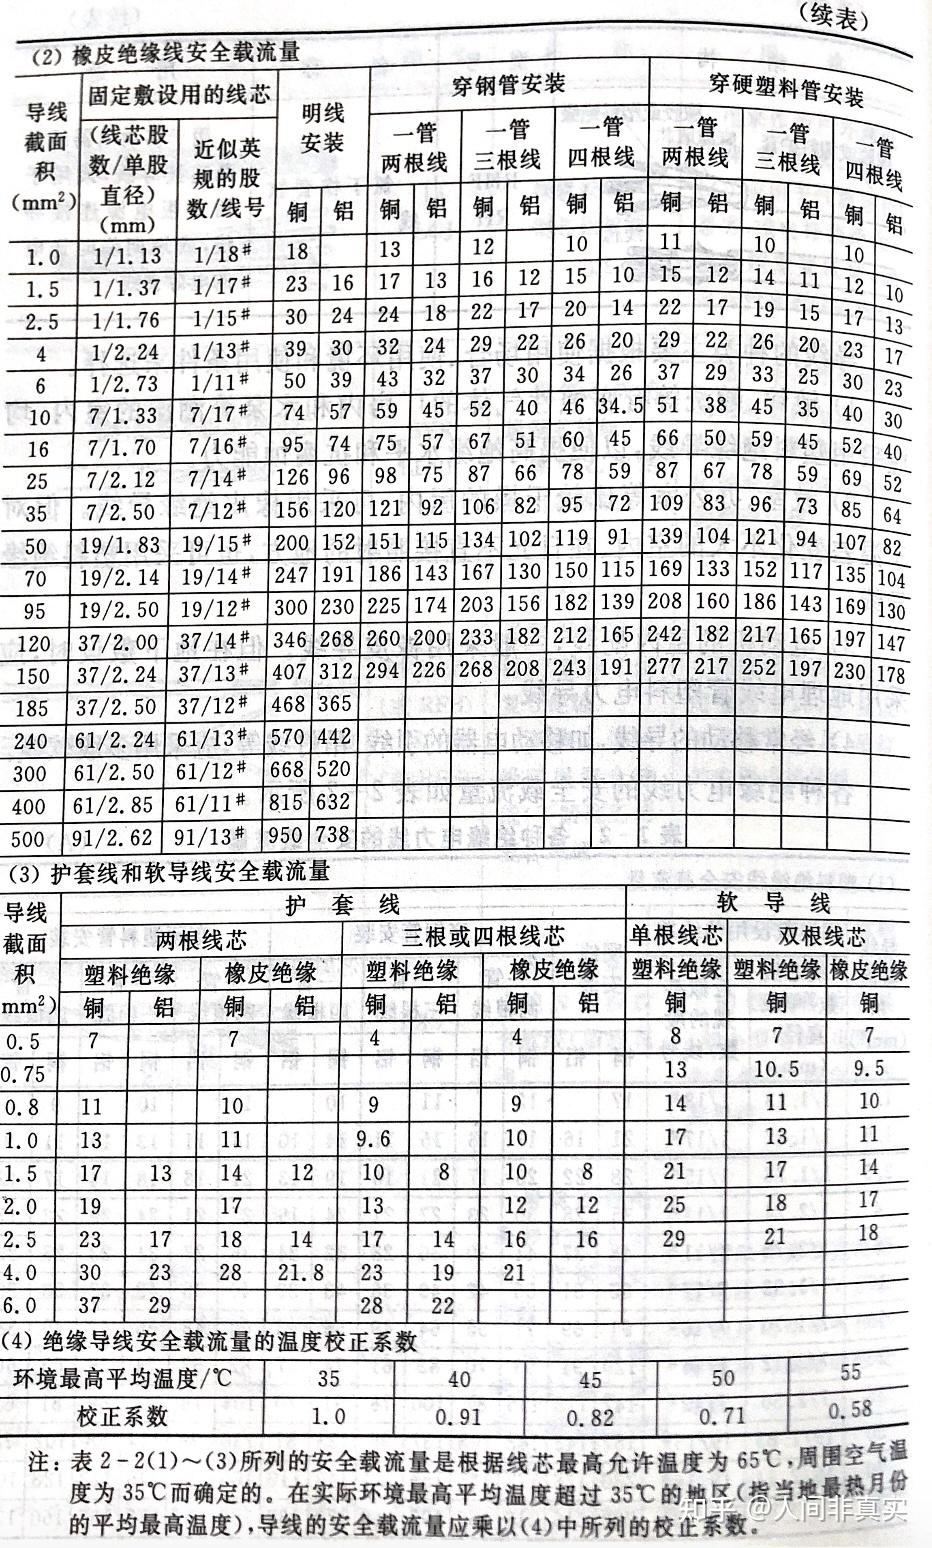 (续表)
(2) 橡皮绝缘线安全载流量
导线截面积(mm²) 固定敷设用的线芯 明线安装 穿钢管安装 穿硬塑料管安装
(线芯股数/单股直径)(mm) 近似英规的股数/线号 一管两根线 一管三根线 一管四根线 一管两根线 一管三根线 一管四根线
铜 铝 铜 铝 铜 铝 铜 铝 铜 铝 铜 铝 铜 铝
1.0 1/1.13 1/18# 18 13 12 10 11 10 10
1.5 1/1.37 1/17# 23 16 17 13 16 12 15 10 15 12 14 11 12 10
2.5 1/1.76 1/15# 30 24 24 18 22 17 20 14 22 17 19 15 17 13
4 1/2.24 1/13# 39 30 32 24 29 22 26 20 29 22 26 20 23 17
6 1/2.73 1/11# 50 39 43 32 37 30 34 26 37 29 33 25 30 23
10 7/1.33 7/17# 74 57 59 45 52 40 46 34.5 51 38 45 35 40 30
16 7/1.70 7/16# 95 74 75 57 67 51 60 45 66 50 59 45 52 40
25 7/2.12 7/14# 126 96 98 75 87 66 78 59 87 67 78 59 69 52
35 7/2.50 7/12# 156 120 121 92 106 82 95 72 109 83 96 73 85 64
50 19/1.83 19/15# 200 152 151 115 134 102 119 91 139 104 121 94 107 82
70 19/2.14 19/14# 247 191 186 143 167 130 150 115 169 133 152 117 135 104
95 19/2.50 19/12# 300 230 225 174 203 156 182 139 208 160 186 143 169 130
120 37/2.00 37/14# 346 268 260 200 233 182 212 165 242 182 217 165 197 147
150 37/2.24 37/13# 407 312 294 226 268 208 243 191 277 217 252 197 230 178
185 37/2.50 37/12# 468 365
240 61/2.24 61/13# 570 442
300 61/2.50 61/12# 668 520
400 61/2.85 61/11# 815 632
500 91/2.62 91/13# 950 738
(3) 护套线和软导线安全载流量
导线截面积mm²) 护套线 软导线
两根线芯 三根或四根线芯 单根线芯 双根线芯
塑料绝缘 橡皮绝缘 塑料绝缘 橡皮绝缘 塑料绝缘 塑料绝缘 橡皮绝缘
铜 铝 铜 铝 铜 铝 铜 铝 铜 铜 铜
0.5 7 7 4 4 8 7 7
0.75 13 10.5 9.5
0.8 11 10 9 9 14 11 10
1.0 13 11 9.6 10 17 13 11
1.5 17 13 14 12 10 8 10 8 21 17 14
2.0 19 17 13 12 12 25 18 17
2.5 23 17 18 14 17 14 16 16 29 21 18
4.0 30 23 28 21.8 23 19 21
6.0 37 29 28 22
(4) 绝缘导线安全载流量的温度校正系数
环境最高平均温度/℃ 35 40 45 50 55
校正系数 1.0 0.91 0.82 0.71 0.58
注：表2-2(1)～(3)所列的安全载流量是根据线芯最高允许温度为65℃,周围空气温
度为35℃而确定的。在实际环境最高平均温度超过35℃的地区(指当地最热月份
的平均最高温度),导线的安全载流量应乘以(4)中所列的校正系数。
知乎 @人间非真实